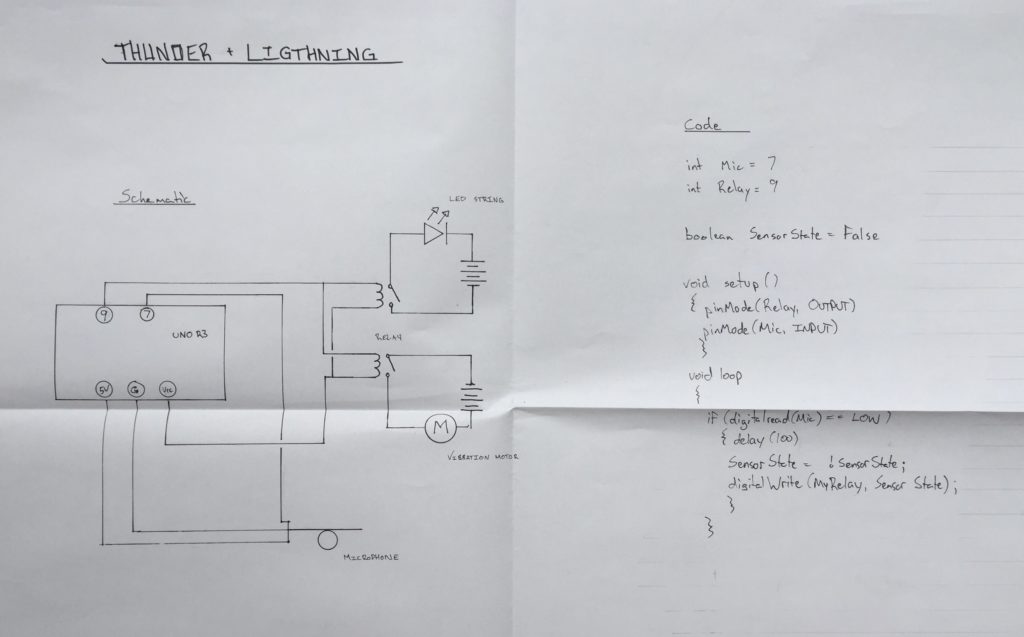 THUNDER + LIGTHNING
Schematic
LED STRING
9
7
UNO R3
RELAY
5V
G
Vcc
M
VIBRATION MOTOR
MICROPHONE
Code
int Mic = 7
int Relay = 9
boolean SensorState = False
void setup ()
{ pinMode (Relay, OUTPUT)
pinMode (Mic, INPUT)
}
void loop
{
if (digitalread (Mic) == LOW )
{ delay (100)
SensorState = !SensorState;
digitalWrite (MyRelay, Sensor State);
}
}